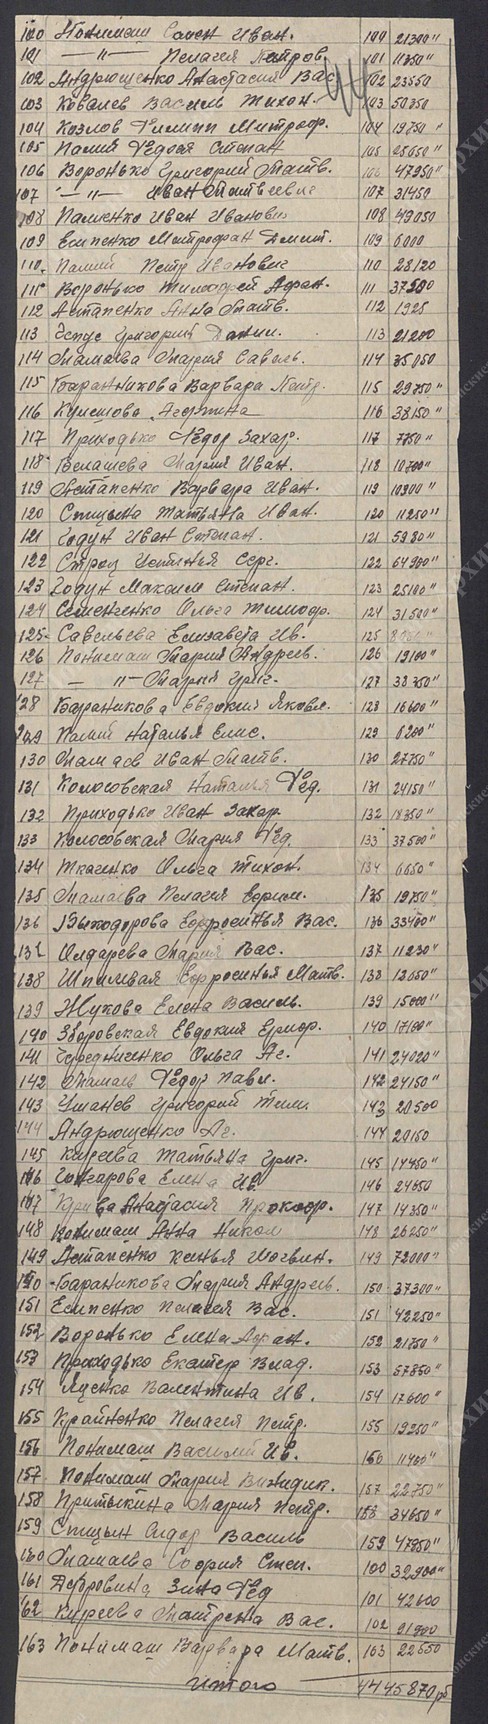 100 Понимаш Сазон Иван. 100 21300"
101 —"— Пелагея Петров. 101 11850"
102 Андрющенко Анастасия Вас. 102 23550
103 Ковалев Василь Тихон. 103 50350
104 Козлов Филипп Митроф. 104 19750"
105 Палий Федосья Степан 105 25650"
106 Воронько Григорий Матв. 106 47950"
107 —"— Иван Матвеевич 107 31450
108 Паленко Иван Иванович 108 49050
109 Есипенко Митрофан Дмит. 109 6000
110. Палий Петр Иванович 110 28120
111 Воронько Тимофей Афан. 111 37500
112 Астапенко Анна Матв. 112 1925
113 Григорий Данил. 113 21200
114 Мамаева Мария Савель. 114 35050
115 Баранникова Варвара Петр. 115 29750"
116 116 38150"
117 Приходько Федор Захар. 117 7750"
118 Велашева Мария Иван. 118 10700"
119 Астапенко Варвара Иван. 119 10900"
120 Спицына Татьяна Иван. 120 11250"
121 Годун Иван Степан. 121 5980"
122 Строц Устинья Серг. 122 64900"
123 Годун Максим Степан. 123 25100"
124 Семенченко Ольга Тимоф. 124 31500"
125 Савельева Елизавета Ив. 125
126 Понимаш Мария Андреев. 126 19100"
127 —"— Мария Григ. 127 38350"
128 Баранникова Евдокия Яковл. 128 16600"
129 Палий Наталья Елис. 129 6200"
130 Мамаев Иван Матв. 130 27750"
131 Колосовская Наталья Фед. 131 24150"
132 Приходько Иван Захар. 132 18350"
133 Колосовская Мария Фед. 133 37500"
134 Ткаченко Ольга Тихон. 134 6650"
135 Мамаева Пелагея Ефим. 135 19750"
136 Выходорова Ефросинья Вас. 136 33400"
137 Олдарева Мария Вас. 137 11230"
138 Шпилевая Ефросинья Матв. 138 12050"
139 Жукова Елена Василь. 139 15000"
140 Зборовская Евдокия Григор. 140 17100"
141 Чередниченко Ольга Аг. 141 24020"
142 Мамаев Федор Павл. 142 24150"
143 Уманев Григорий Тим. 143 20500
144 Андрющенко Аг. 144 20150
145 Киреева Татьяна Григ. 145 14450"
146 Гончарова Елена Ив. 146 24650
147 Анастасия Прокоф. 147 14350"
148 Понимаш Анна Никол 148 26250"
149 Астапенко Ксенья Логвин. 149 72000"
150 Баранникова Мария Андреев. 150 37300"
151 Есипенко Пелагея Вас. 151 42250"
152 Воронько Елена Афан. 152 21750"
153 Приходько Екатер Влад. 153 57850"
154 Яценко Валентина Ив. 154 17600"
155 Крайненко Пелагея Петр. 155 19250"
156 Понимаш Василий Ив. 11400"
157 Понимаш Мария 157 22750"
158 Притыкина Мария Петр. 158 34650"
159 Спицын Сидор Василь 159 47950"
160 Мамаева София Степ. 160 32900"
161 Зина Фед 161 42600
162 Киреева Матрена Вас. 162 21900
163 Понимаш Варвара Матв. 163 22650
Итого 4445870 рб